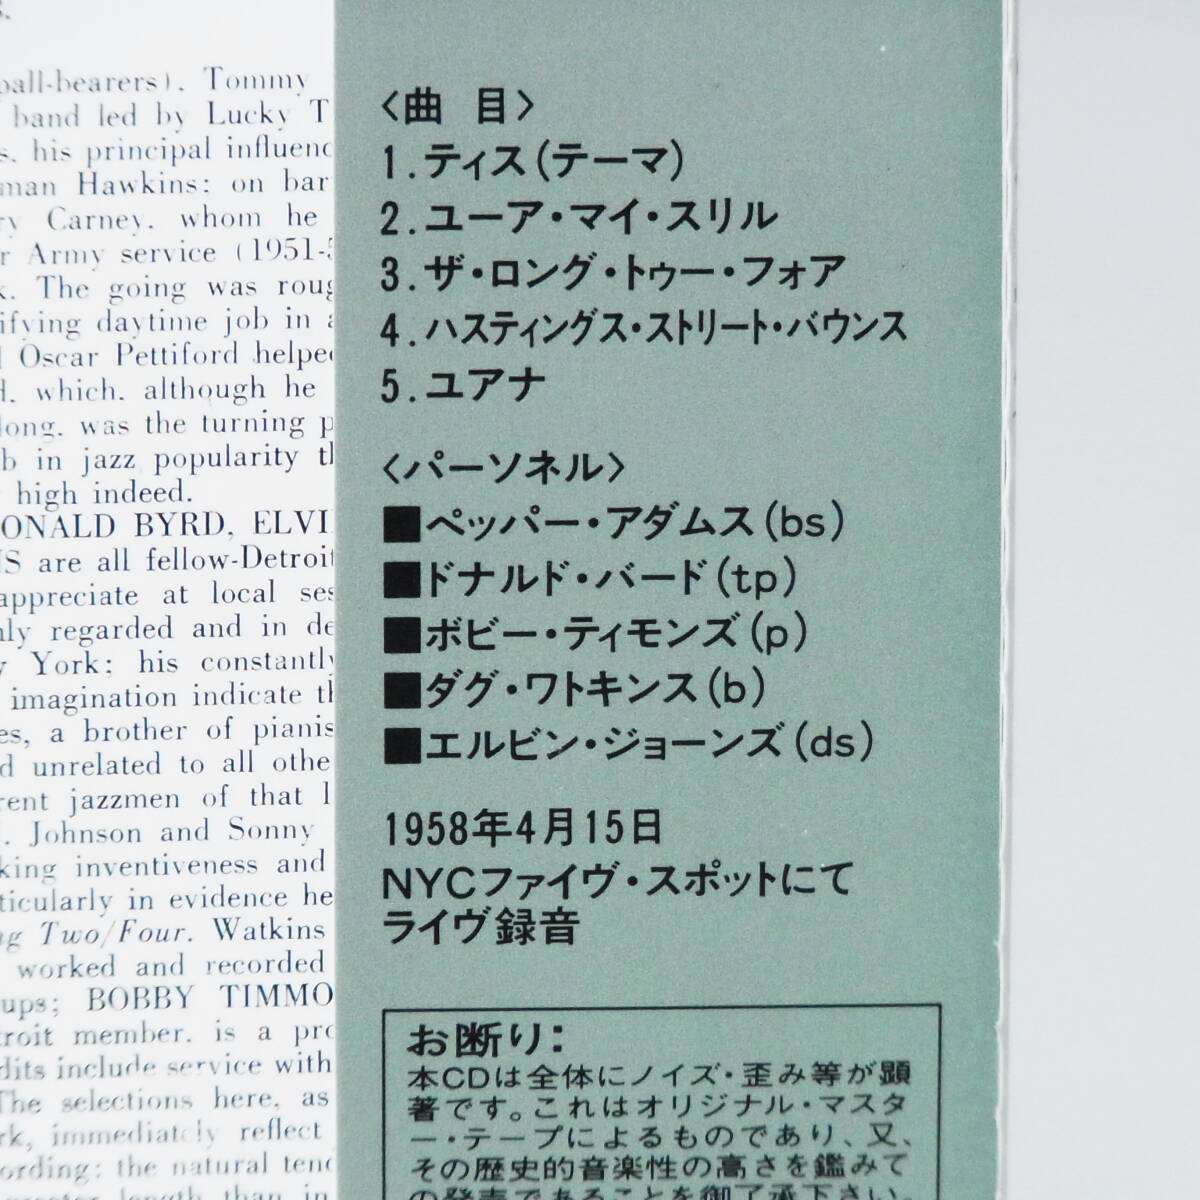 s.
ball-bearers). Tommy
band led by Lucky T
s. his principal influenc
man Hawkins: on bar
ry Carney. whom he
r Army service (1951-5
k. The going was roug
ifying daytime job in a
d Oscar Pettiford helped
d. which. although he
long. was the turning p
b in jazz popularity th
high indeed.
ONALD BYRD, ELVI
IS are all fellow-Detroit
appreciate at local ses
nly regarded and in de
y York: his constantly
imagination indicate th
es, a brother of pianis
d unrelated to all othe
rent jazzmen of that l
. Johnson and Sonny
king inventiveness and
ticularly in evidence he
ng Two/Four. Watkins
worked and recorded
ups; BOBBY TIMMO
troit member. is a pro
dits include service with
The selections here, as
rk, immediately reflect
ording: the natural tend
greater length than in
〈曲 目〉
1.ティス(テーマ)
2.ユーア・マイ・スリル
3.ザ・ロング・トゥー・フォア
4.ハスティングス・ストリート・バウンス
5.ユアナ
〈パーソネル〉
■ペッパー・アダムス(bs)
■ドナルド・バード(tp)
■ボビー・ティモンズ(p)
■ダグ・ワトキンス(b)
■エルビン・ジョーンズ(ds)
1958年4月15日
NYCファイヴ・スポットにて
ライヴ録音
お断り:
本CDは全体にノイズ・歪み等が顕
著です。これはオリジナル・マスタ
ー・テープによるものであり、又、
その歴史的音楽性の高さを鑑みて
の発売であることを御了承下さい。